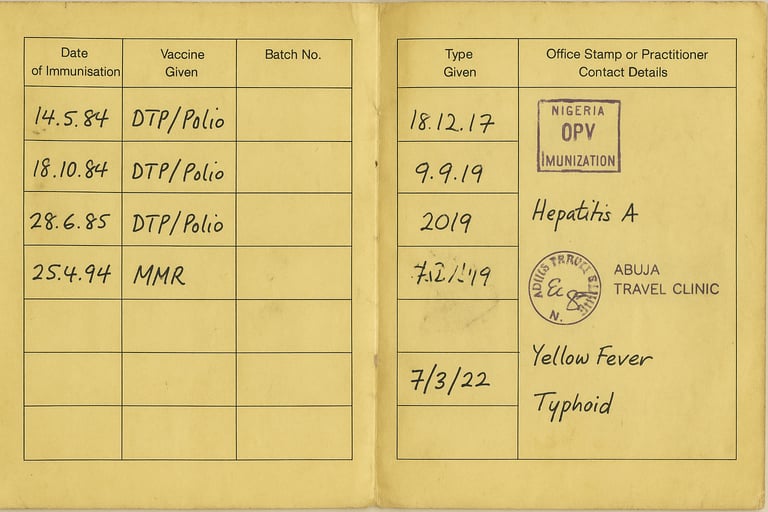 Date
of Immunisation
Vaccine
Given
Batch No.
14.5.84 DTP/Polio
18.10.84 DTP/Polio
28.6.85 DTP/Polio
25.4.94 MMR
Type
Given
Office Stamp or Practitioner
Contact Details
18.12.17
NIGERIA
OPV
IMUNIZATION
9.9.19
2019
Hepatitis A
ABUJA
TRAVEL CLINIC
N.
7/3/22
Yellow Fever
Typhoid